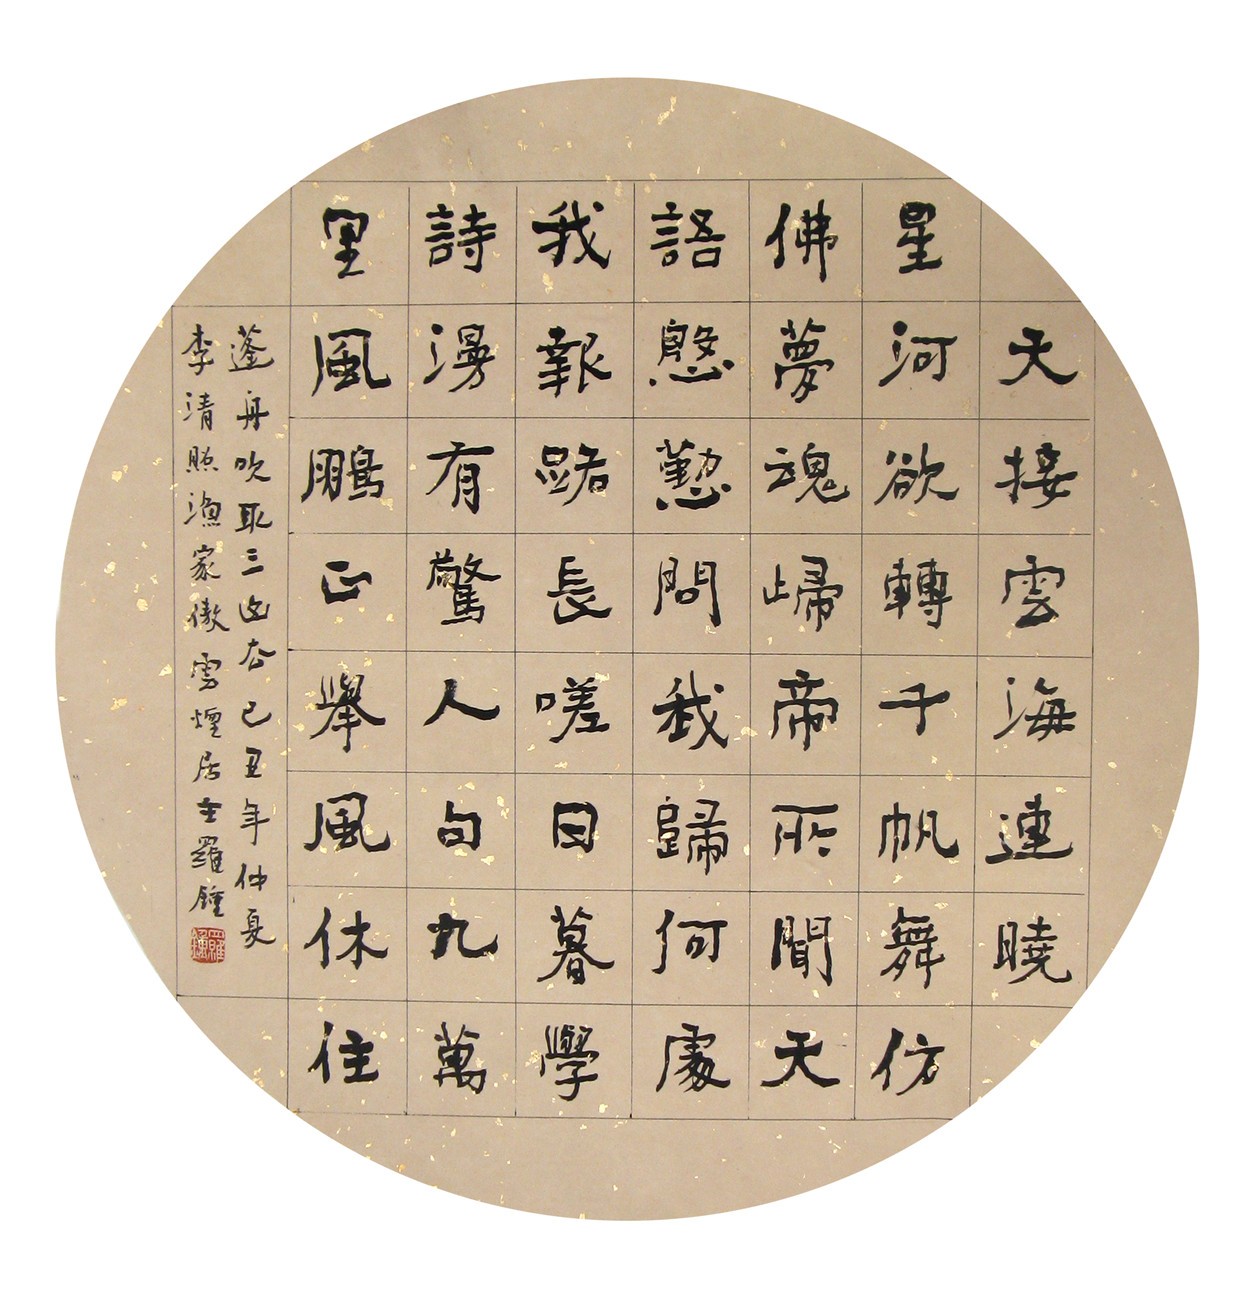 天接雲海連曉
星河欲轉千帆舞仿
佛夢魂歸帝所聞天
語慇懃問我歸何處
我報路長嗟日暮學
詩漫有驚人句九萬
里風鵬正舉風休住
蓬舟吹取三山去己丑年仲夏
李清照漁家傲雲煙居士羅鍾
羅鍾